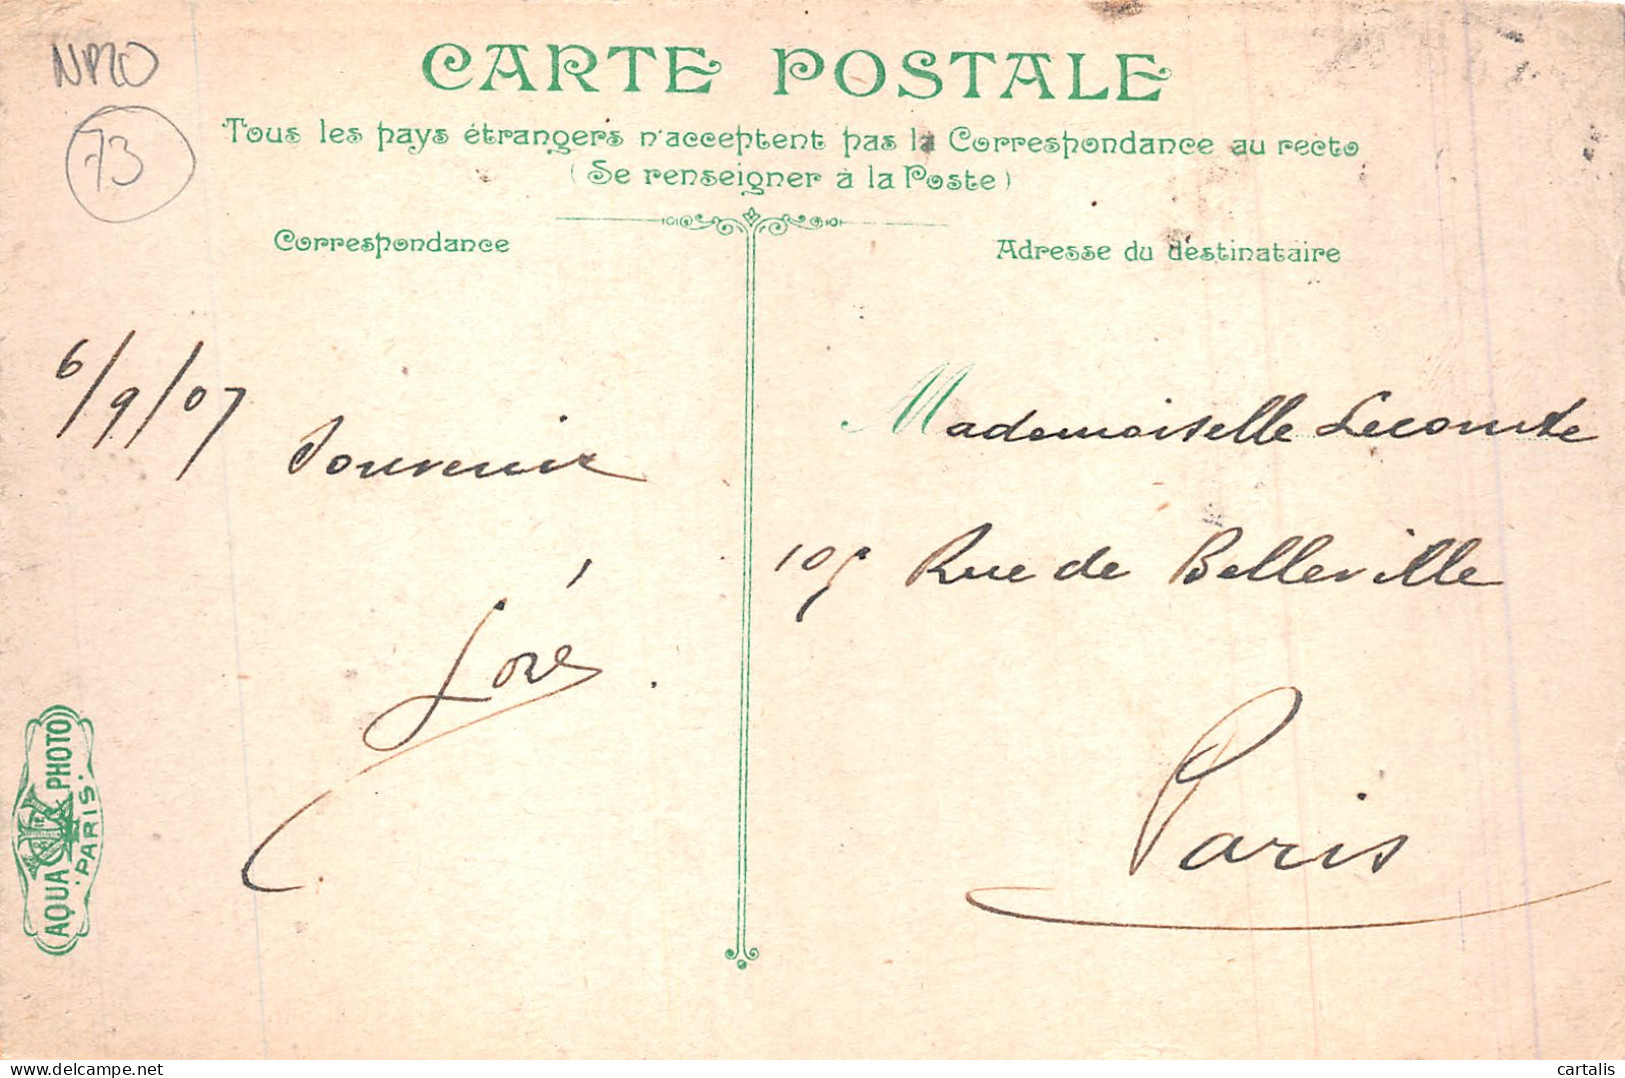 73
CARTE POSTALE
Tous les pays étrangers n'acceptent pas la Correspondance au recto
(Se renseigner à la Poste)
Correspondance
Adresse du destinataire
6/9/07
Souvenir
Mademoiselle Lecomte
105 Rue de Belleville
Paris
AQUA PHOTO
PARIS
cartalis